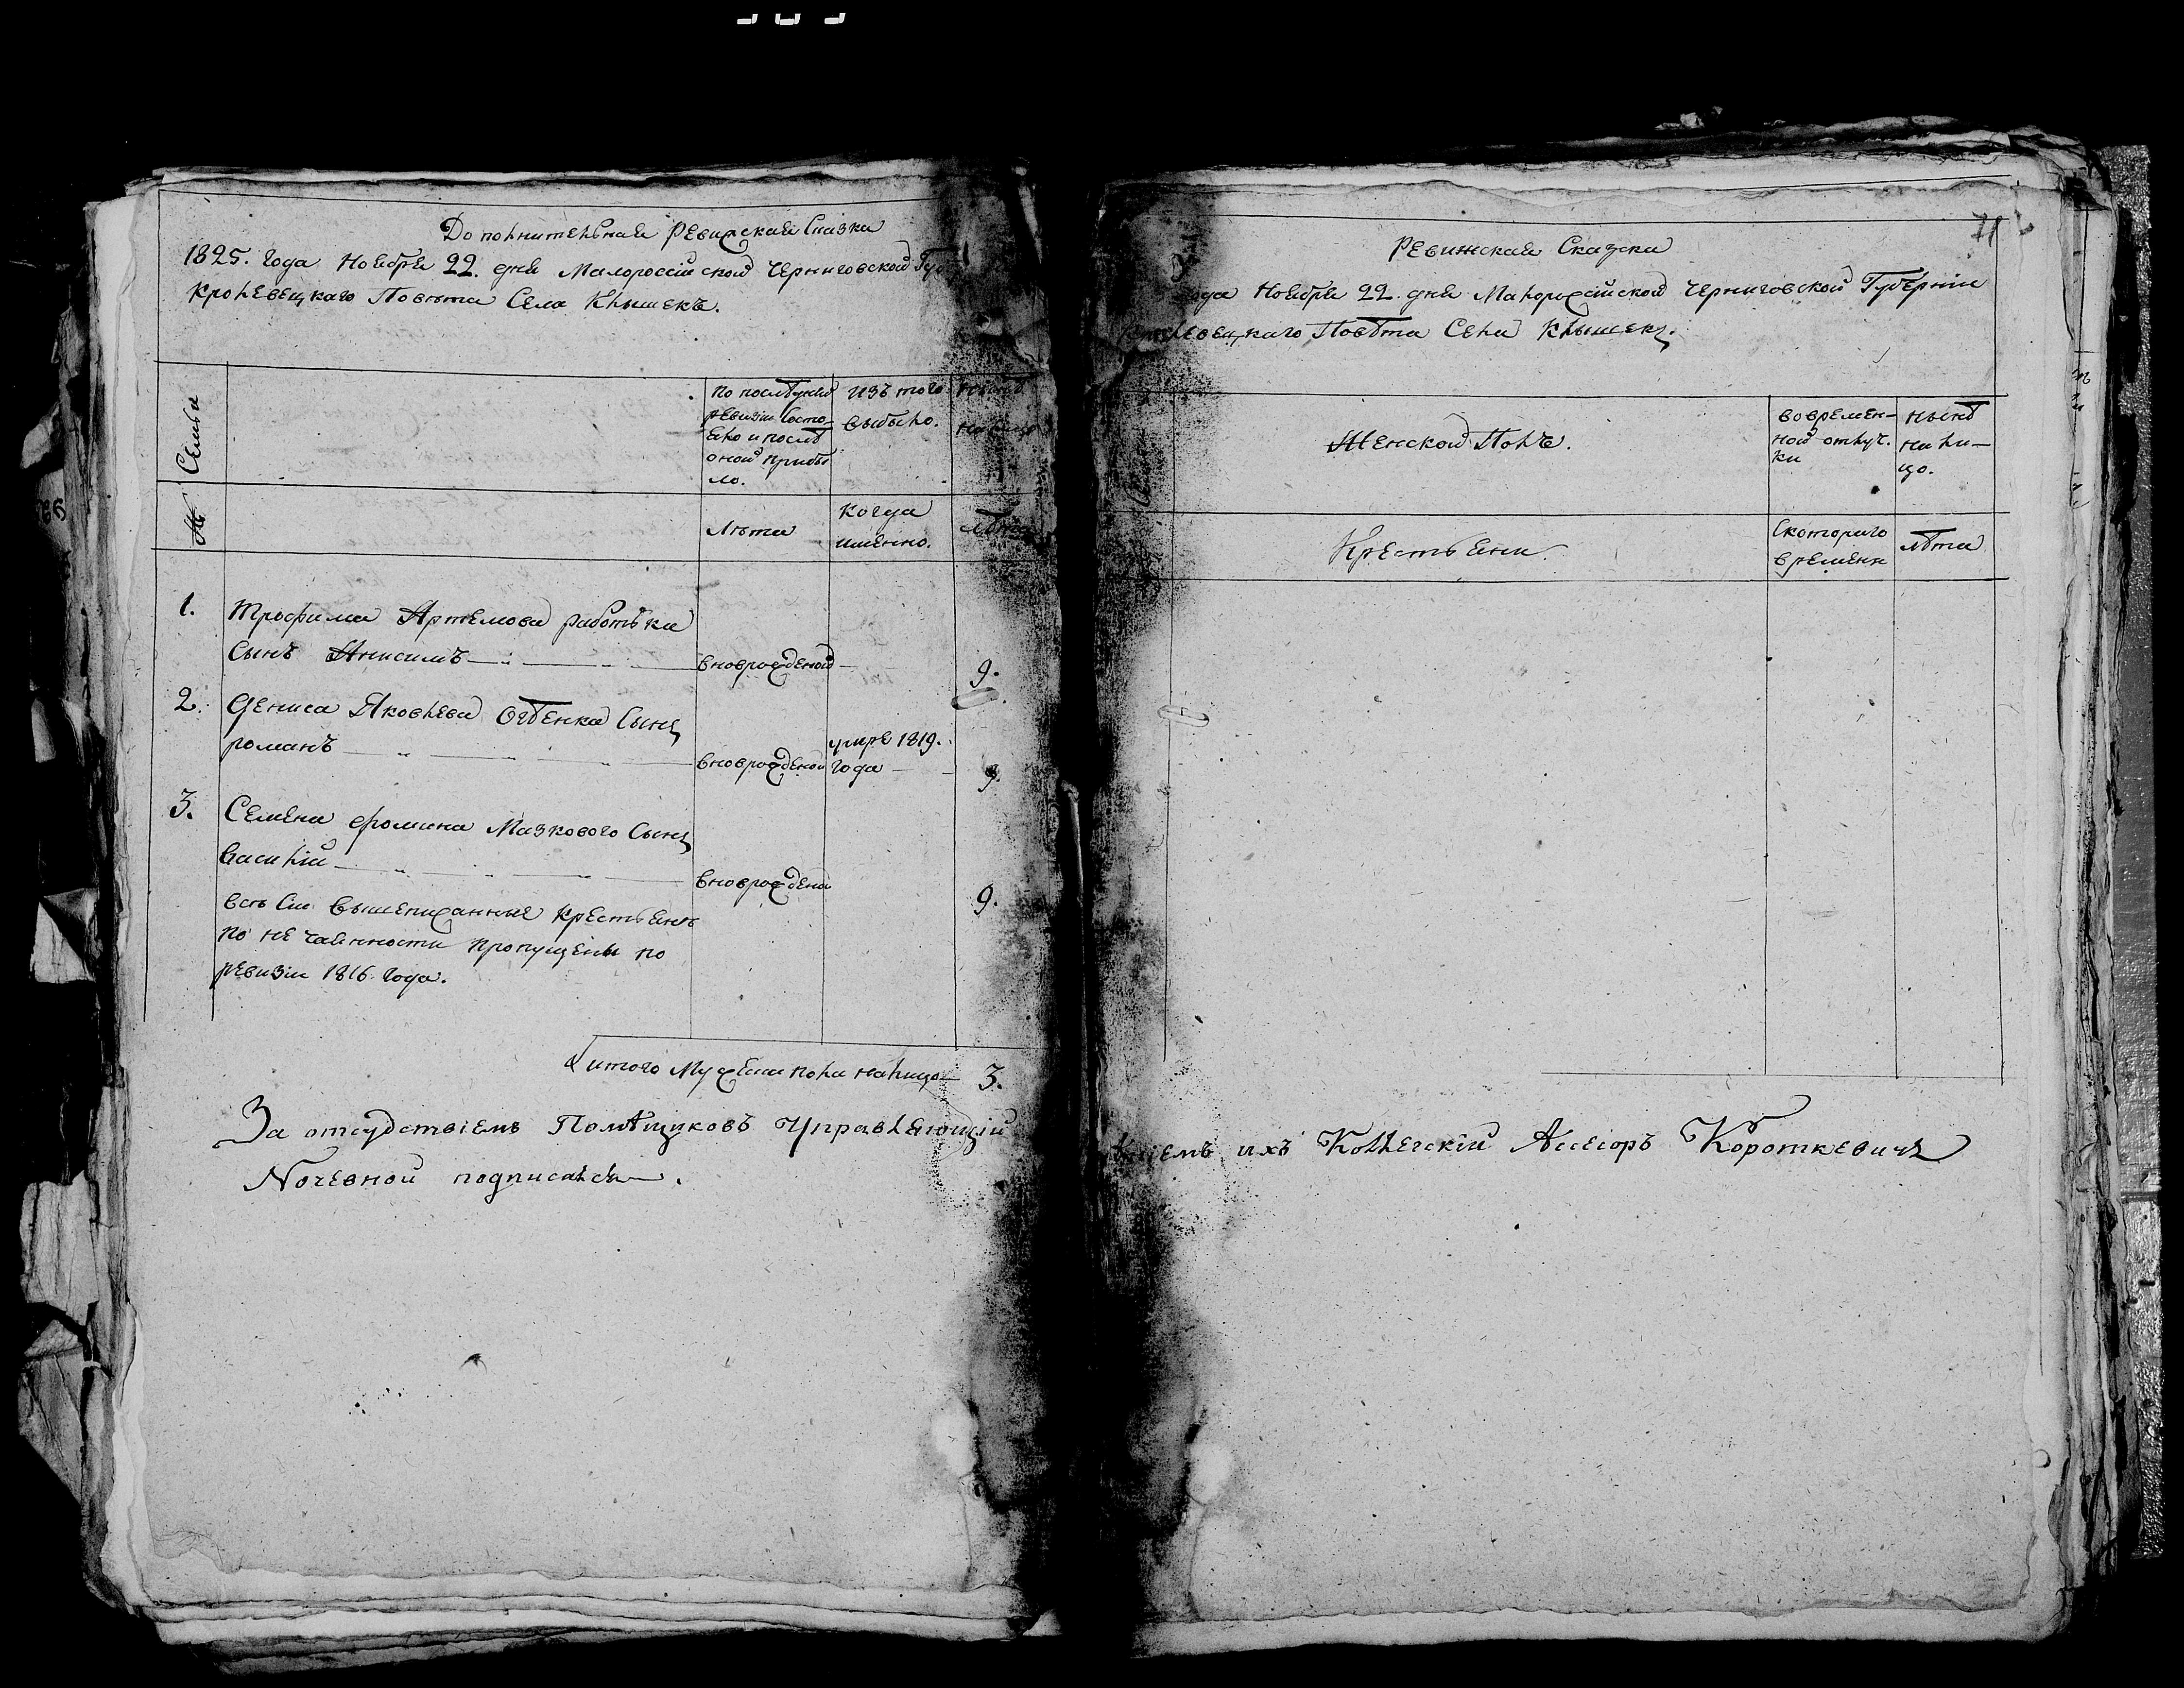 Дополнительная Ревижская Сказка
1825. года Ноября 22. дня Малороссійской Черниговской Гу
Кролевецкаго Повѣта Села Клышекъ.
Семьи
По послѣдней
ревизіи Состо-
яло и послѣ
оной прибы
ло.
Изъ того
выбыло.
Нынѣ
на лицо
№
Лѣта
Когда
именно.
лѣта
1. Трофима Артемова работька
Сынъ Анисимъ вноврожденой 9.
2. Дениса Яковлева Сынъ
романъ вноврожденой умре 1819. года
3. Семена фомина Мазкового Сынъ
василій вноврожденой 9.
всѣ Сіи вышеписанные крестьяне
по не чаянности пропущены по
ревизіи 1816 года.
итого Мужеска пола налицо 3.
За отсудствіемъ Помѣщиковъ Управляющій
Ночевной подписался.
71
Ревижская Сказка
года Ноября 22. дня Малоросійской Черниговской Губерніи
Повѣта Села Клышекъ.
Женской Полъ.
во времен-
ной отлуч.
ки
нынѣ
на ли-
цо.
Крестьяни.
Скотораго
времени
лѣта
имъ ихъ Коллегскій Ассесоръ Короткевичъ